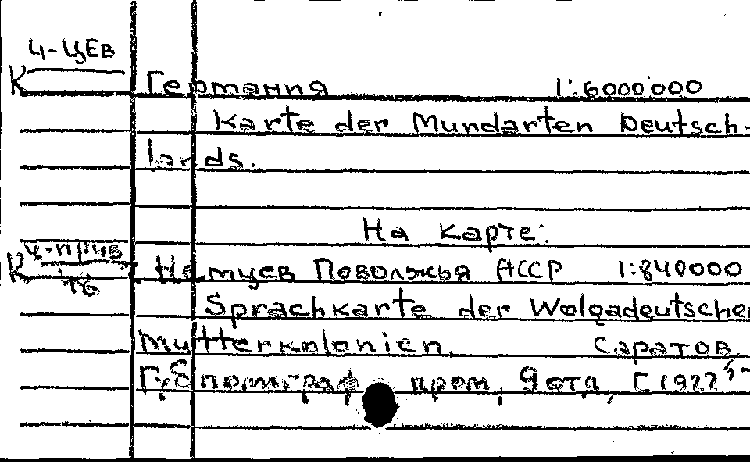 Ч-ЦЕВ
К
Германия 1:6000000
Karte der Mundarten Deutsch-
lands.
На карте:
К Ч-прив
16
Немцев Поволжья АССР 1:840000
Sprachkarte der Wolgadeutschen
Mutterkolonien. Саратов
Губполиграф пром, 9 отд, [1922